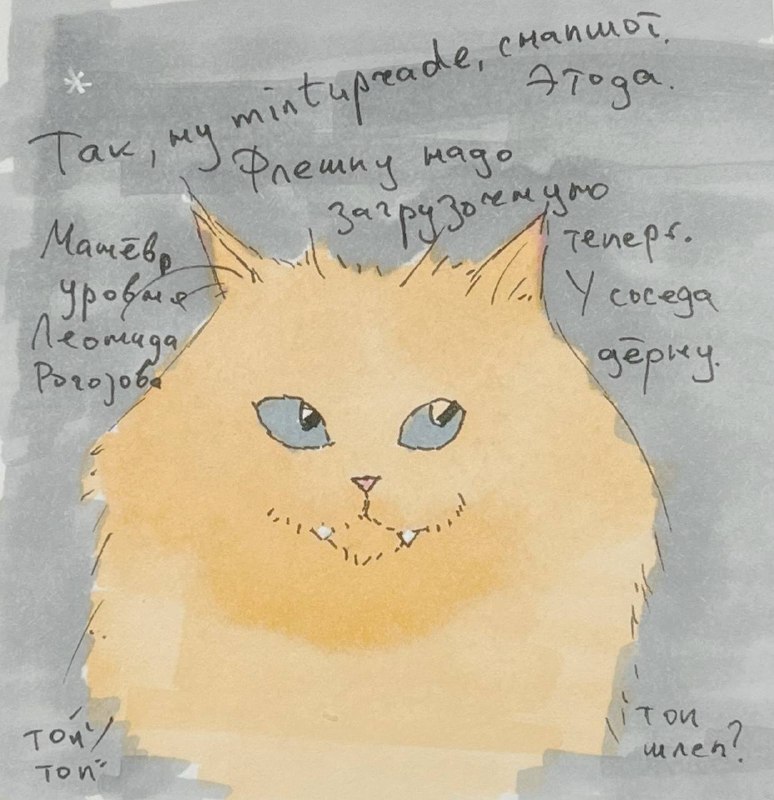 Так, ну mintupgrade, снапшот.
Этода.
Флешку надо
загрузочнуую
теперь.
У соседа
дёрну.
Манёвр
уровня
Леонида
Рогозова
топ
топ
топ
шлеп?